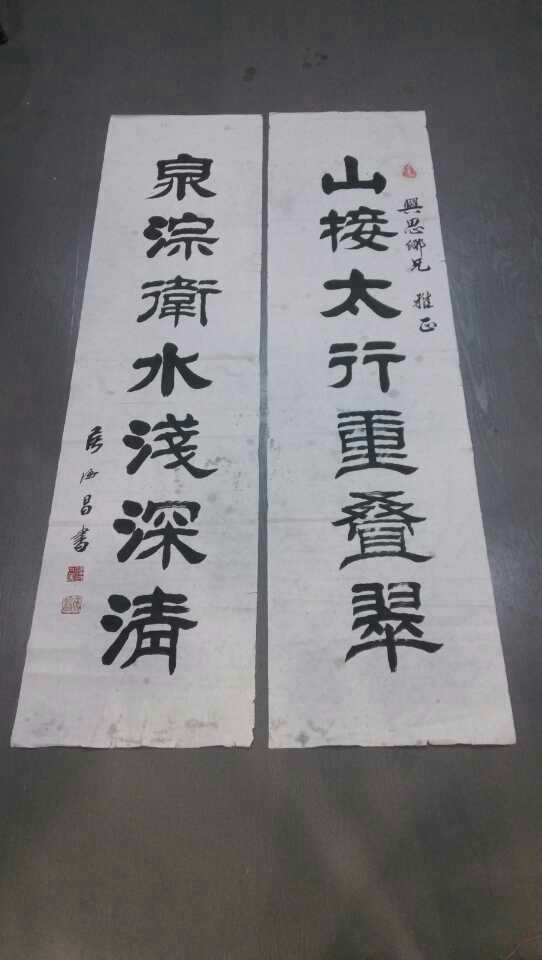 山接太行重叠翠
興思鄉兄 雅正
泉淙衛水淺深清
海昌書